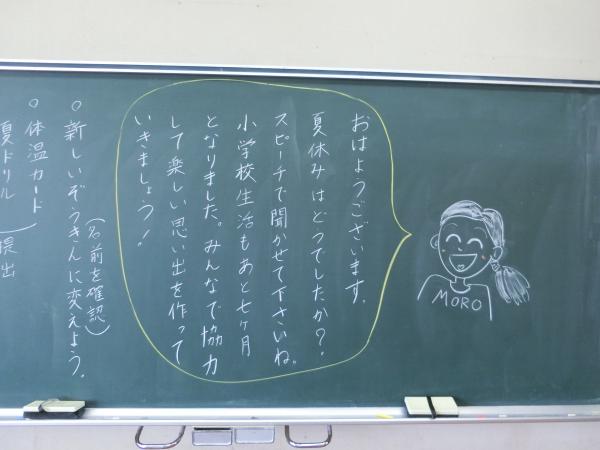 おはようございます。
夏休みはどうでしたか？
スピーチで聞かせて下さいね。
小学校生活もあと七ヶ月
となりました。みんなで協力
して楽しい思い出を作って
いきましょう！
MORO
（名前を確認）
○新しいぞうきんに変えよう。
○体温カード
夏ドリル
提出